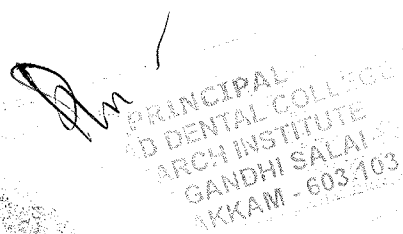 PRINCIPAL
D DENTAL COLLEGE
ARCH INSTITUTE
GANDHI SALAI
KKAM - 603 103